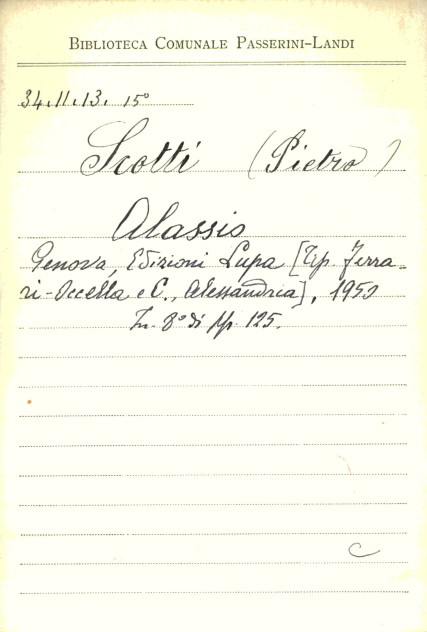 BIBLIOTECA COMUNALE PASSERINI-LANDI
34.11.13. 15°
Scotti (Pietro)
Alassio
Genova, Edizioni Lupa [Tip. Ferra-
ri-Occella e C., Alessandria], 1950
In-8° di pp. 125.
C